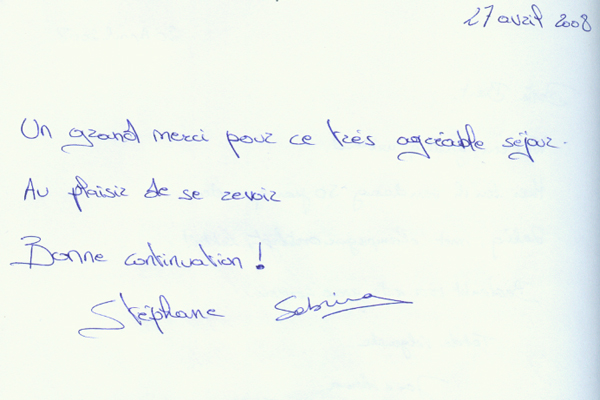 27 avril 2008
Un grand merci pour ce très agréable séjour.
Au plaisir de se revoir
Bonne continuation !
Stéphane Sabrina